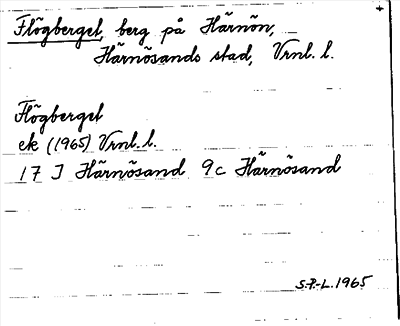 Flögberget, berg på Härnön,
Härnösands stad, Vrnl. l.
Flögberget
ek (1965) Vrnl. l.
17 J Härnösand 9c Härnösand
S.P.-L. 1965